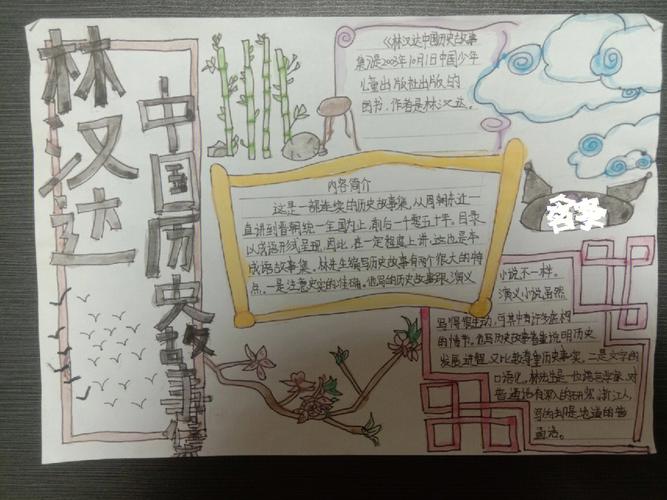 林汉达
中国历史故事集
《林汉达中国历史故事
集》是2003年10月1日中国少年
儿童出版社出版的
图书,作者是林汉达。
内容简介
这是一部连实的历史故事集,从周朝东迁一
直讲到晋朝统一全国为止,前后一千零五十年。目录
以成语形式呈现,因此,在一定程度上讲,这也是本
成语故事集。林先生编写历史故事有两个很大的特
点。一是注意史实的准确。他写的历史故事跟演义
小说不一样。
演义小说虽然
写得很生动,可其中有许多虚构
的情节。他写历史故事着重说明历史
发展进程,又比较尊重历史事实。二是文字的
口语化。林先生是一位语言学家,对
普通话有深入的研究,浙江人,
写的却是地道的普
通话。